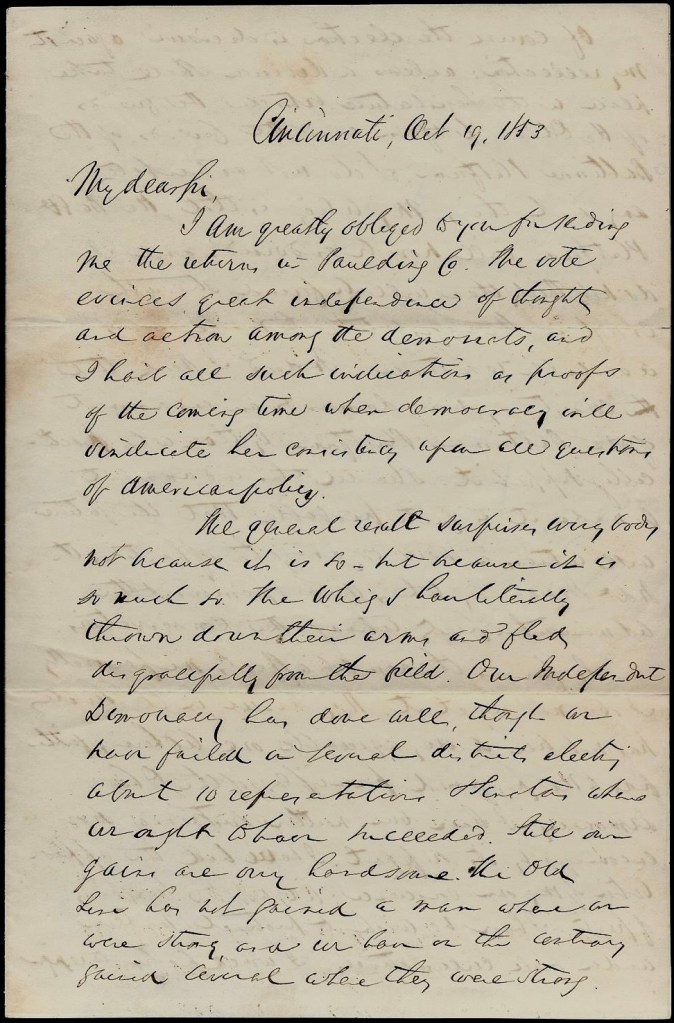 Cincinnati, Oct 19, 1853
My dear Sir,
I am greatly obliged to you for sending
me the returns in Paulding Co. The vote
evinces great independence of thought
and action among the democrats, and
I hail all such indications as proofs
of the coming time when democracy will
vindicate her consistency upon all questions
of American policy.
The general result surprises every body
not because it is so - but because it is
so much so. The Whigs have literally
thrown down their arms and fled
disgracefully from the field. Our Independent
Democracy has done well, though we
have failed in several districts electing
about 10 representatives & Senators where
we ought to have succeeded. Still our
gains are very handsome. The Old
Line has not gained a man where we
were strong, and we have on the contrary
gained several where they were strong.